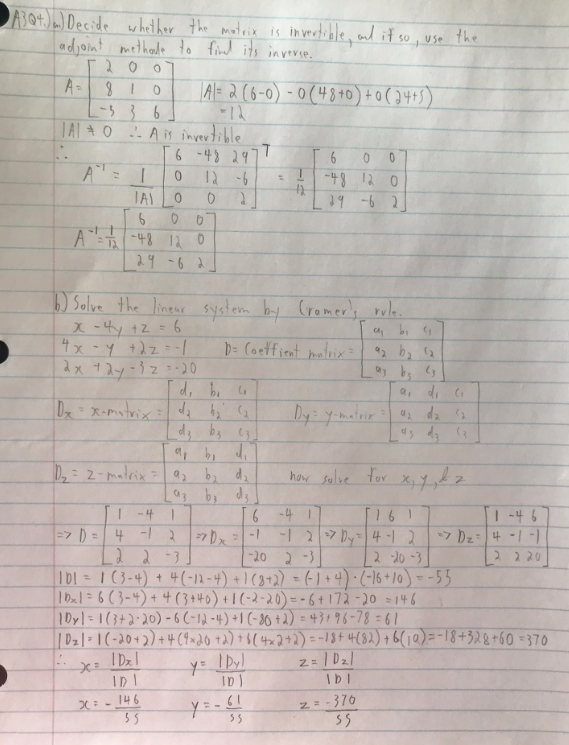 A3Q4.) a) Decide whether the matrix is invertible, and if so, use the
adjoint methode to find its inverse.
A = [ 2 0 0
8 1 0
-5 3 6 ] |A| = 2(6-0) - 0(48+0) + 0(24+5)
= 12
|A| ≠ 0 ∴ A is invertible
∴ A⁻¹ = 1/|A| [ 6 -48 29
0 12 -6
0 0 2 ]ᵀ = 1/12 [ 6 0 0
-48 12 0
29 -6 2 ]
A⁻¹ = 1/12 [ 6 0 0
-48 12 0
29 -6 2 ]
b) Solve the linear system by Cramer's rule.
x - 4y + z = 6
4x - y + 2z = -1 D = Coeffient matrix = [ a₁ b₁ c₁
a₂ b₂ c₂
a₃ b₃ c₃ ]
2x + 2y - 3z = -20
Dx = x-matrix = [ d₁ b₁ c₁
d₂ b₂ c₂
d₃ b₃ c₃ ] Dy = y-matrix = [ a₁ d₁ c₁
a₂ d₂ c₂
a₃ d₃ c₃ ]
Dz = z-matrix = [ a₁ b₁ d₁
a₂ b₂ d₂
a₃ b₃ d₃ ] now solve for x, y, & z
=> D = [ 1 -4 1
4 -1 2
2 2 -3 ] => Dx = [ 6 -4 1
-1 -1 2
-20 2 -3 ] => Dy = [ 1 6 1
4 -1 2
2 -20 -3 ] => Dz = [ 1 -4 6
4 -1 -1
2 2 20 ]
|D| = 1(3-4) + 4(-12-4) + 1(8+2) = (-1+4)·(-16+10) = -55
|Dx| = 6(3-4) + 4(3+40) + 1(-2-20) = -6+172-20 = 146
|Dy| = 1(3+2·20) - 6(-12-4) + 1(-80+2) = 43+96-78 = 61
|Dz| = 1(-20+2) + 4(4×20+2) + 6(4×2+2) = -18+4(82)+6(10) = -18+328+60 = 370
∴ x = |Dx|/|D| y = |Dy|/|D| z = |Dz|/|D|
x = -146/55 y = -61/55 z = -370/55